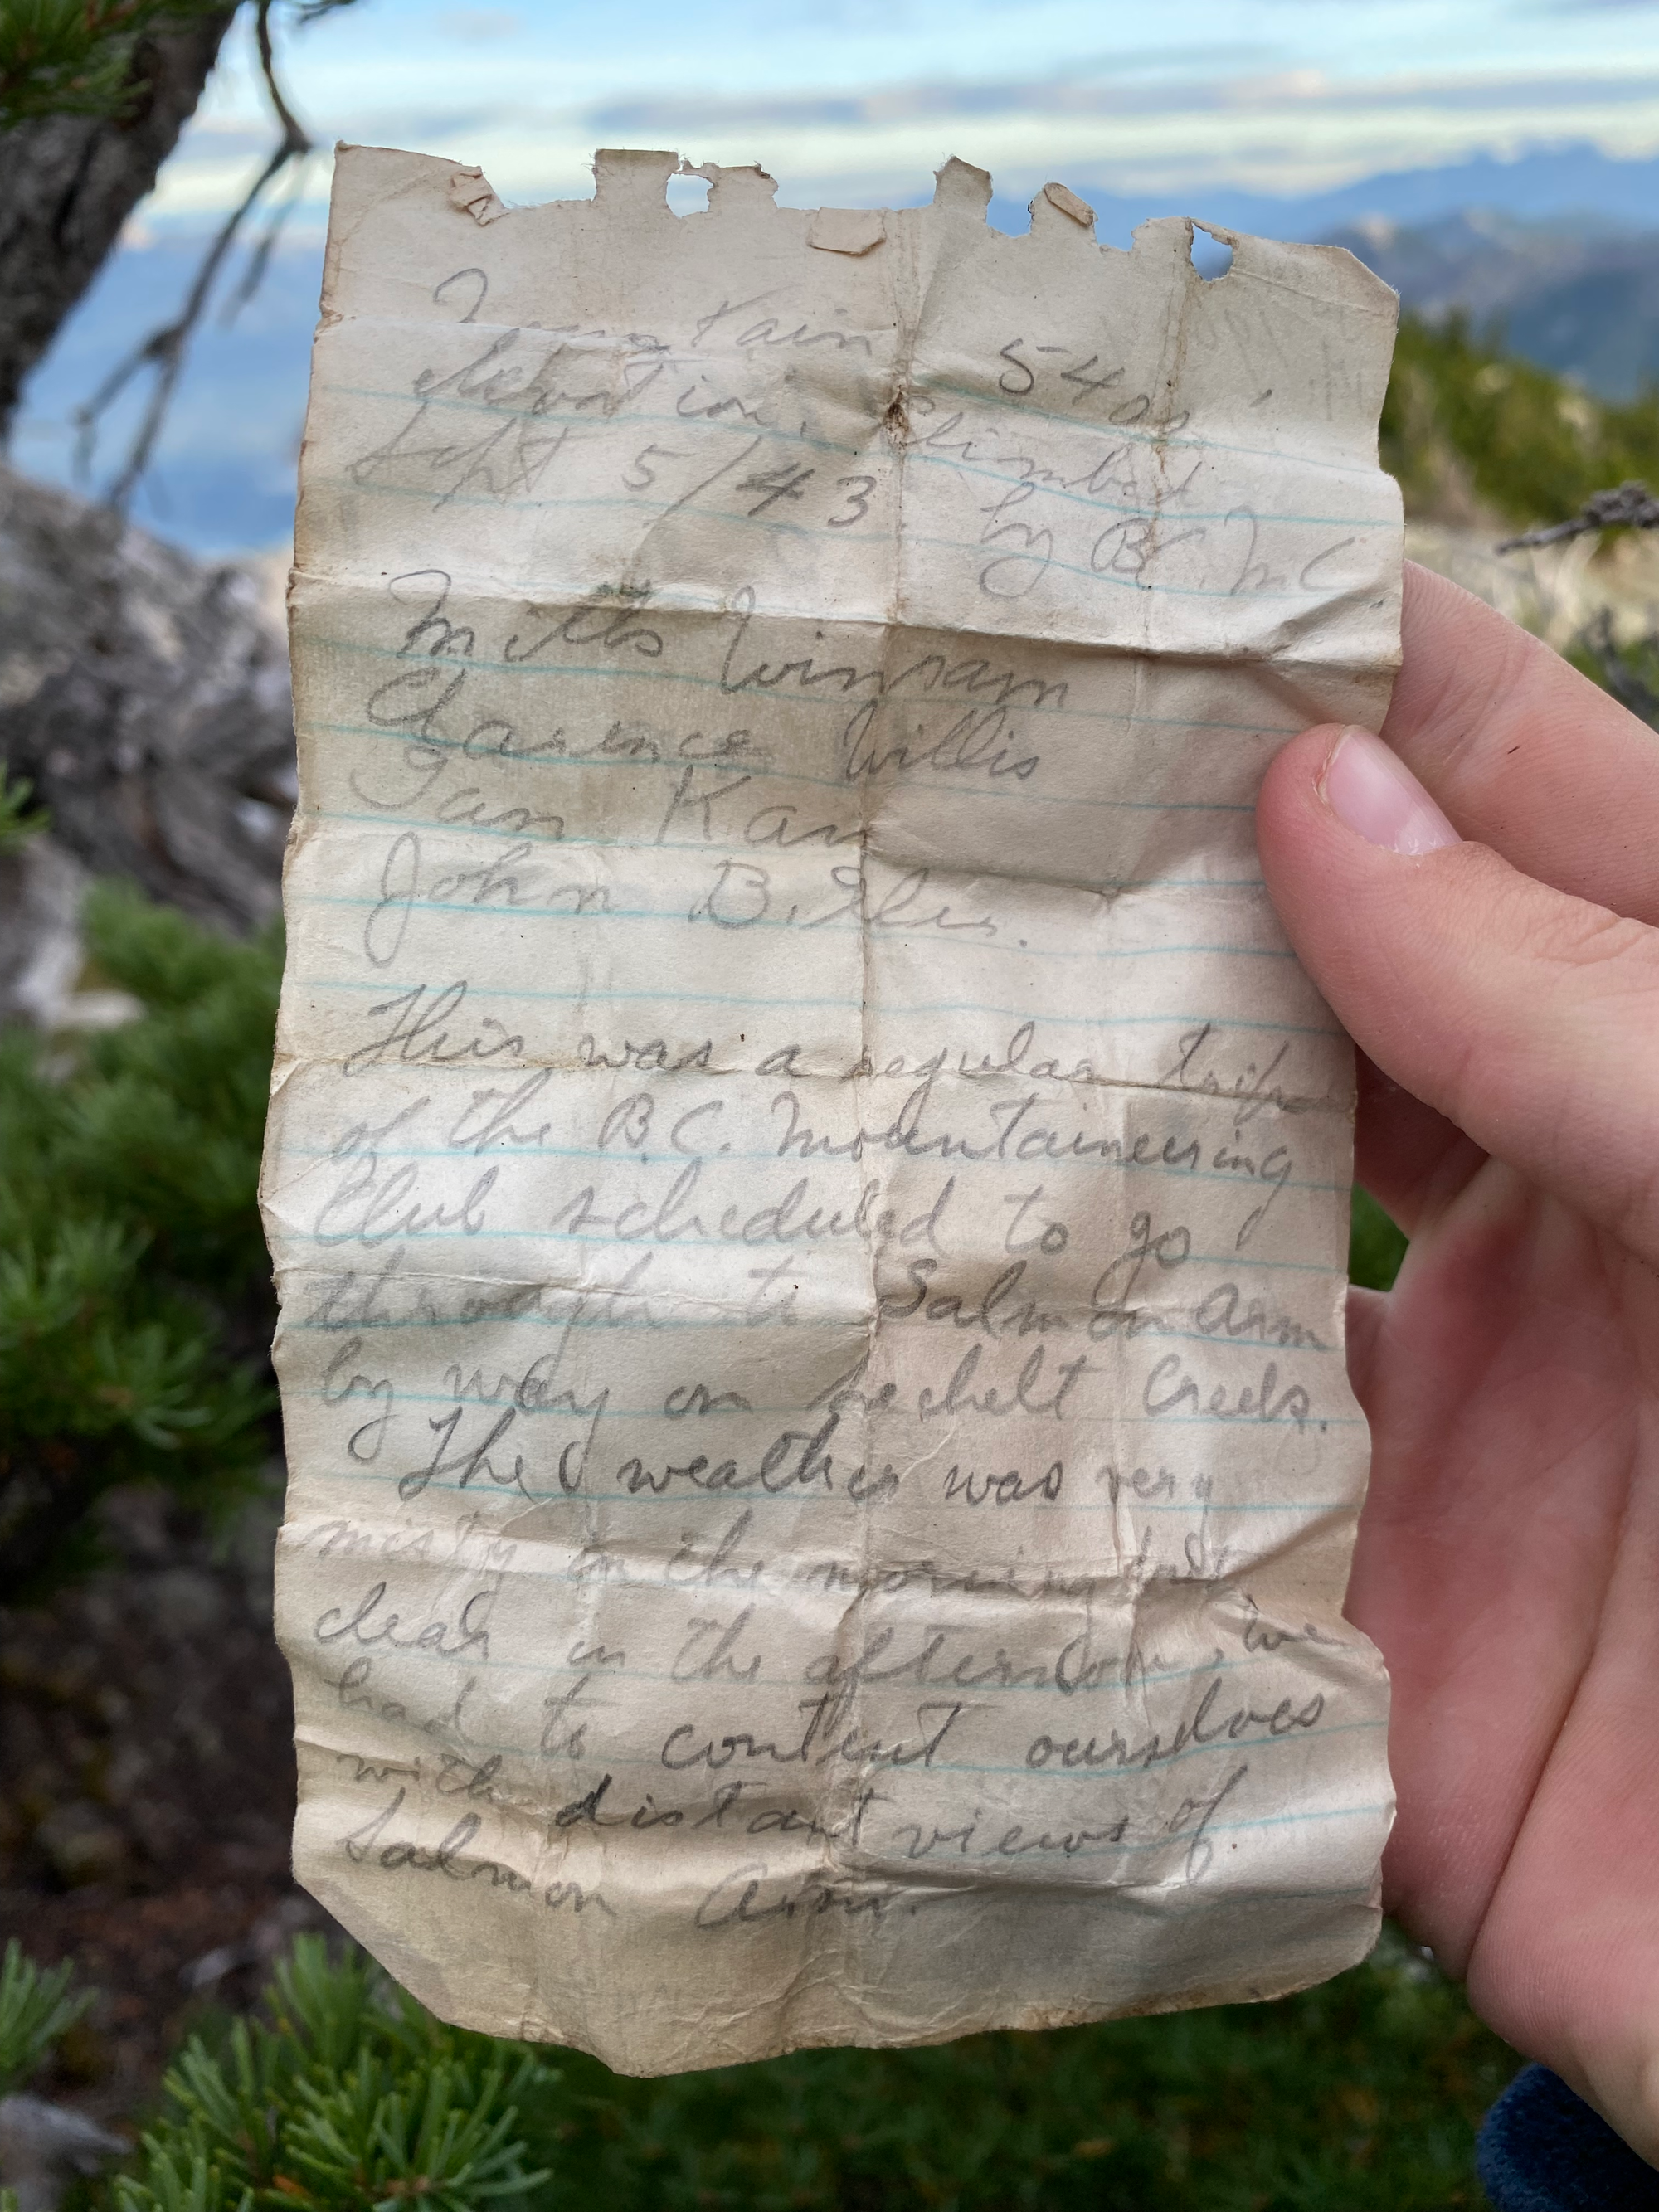 Mountain 5400'
elevation. Climbed
Sept 5/43. by B.C.M.C
Milts Winram
Clarence Willis
Ian Kay
John B.
This was a regular trip
of the B.C. Mountaineering
Club scheduled to go
through to Salmon Arm
by way on Sechelt Creek.
The weather was very
misty in the morning but
clear in the afternoon, we
had to content ourselves
with distant views of
Salmon Arm.